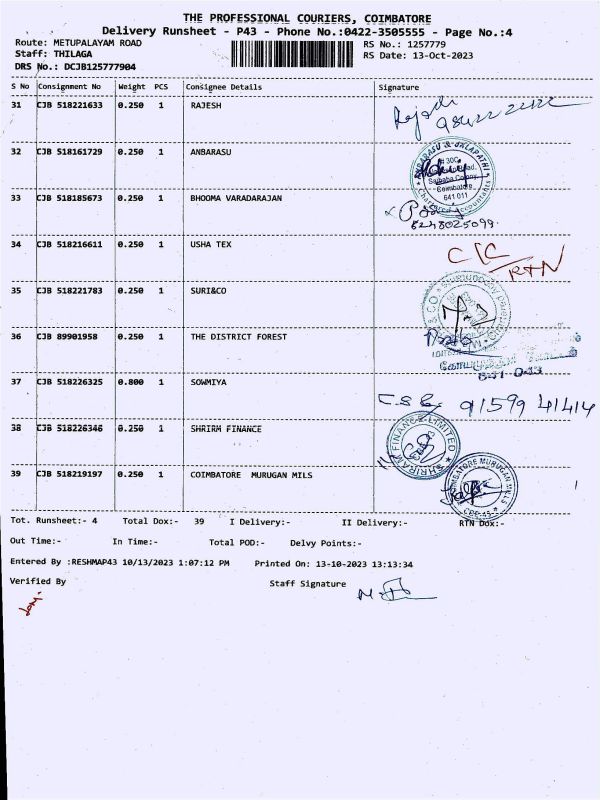 THE PROFESSIONAL COURIERS, COIMBATORE
Delivery Runsheet - P43 - Phone No.:0422-3505555 - Page No.:4
Route: METUPALAYAM ROAD RS No.: 1257779
Staff: THILAGA RS Date: 13-Oct-2023
DRS No.: DCJB125777904
S No Consignment No Weight PCS Consignee Details Signature
31 CJB 518221633 0.250 1 RAJESH
32 CJB 518161729 0.250 1 ANBARASU
ANBARASU & JALAPATHI
Saibaba Colony
Coimbatore
641 011
Chartered Accountants
33 CJB 518185673 0.250 1 BHOOMA VARADARAJAN
8248025099
34 CJB 518216611 0.250 1 USHA TEX
C/C
RTN
35 CJB 518221783 0.250 1 SURI&CO
36 CJB 89901958 0.250 1 THE DISTRICT FOREST
37 CJB 518226325 0.800 1 SOWMIYA
91599 41414
38 CJB 518226346 0.250 1 SHRIRM FINANCE
SHRIRAM FINANCE LIMITED
39 CJB 518219197 0.250 1 COIMBATORE MURUGAN MILS
COIMBATORE MURUGAN MILLS
Tot. Runsheet:- 4 Total Dox:- 39 I Delivery:- II Delivery:- RTN Dox:-
Out Time:- In Time:- Total POD:- Delvy Points:-
Entered By :RESHMAP43 10/13/2023 1:07:12 PM Printed On: 13-10-2023 13:13:34
Verified By Staff Signature